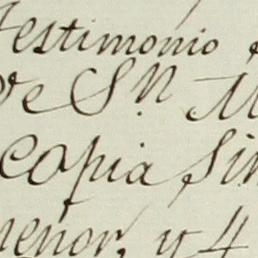 Testimonio
de Sn. M
copia Sin
menor, y 4